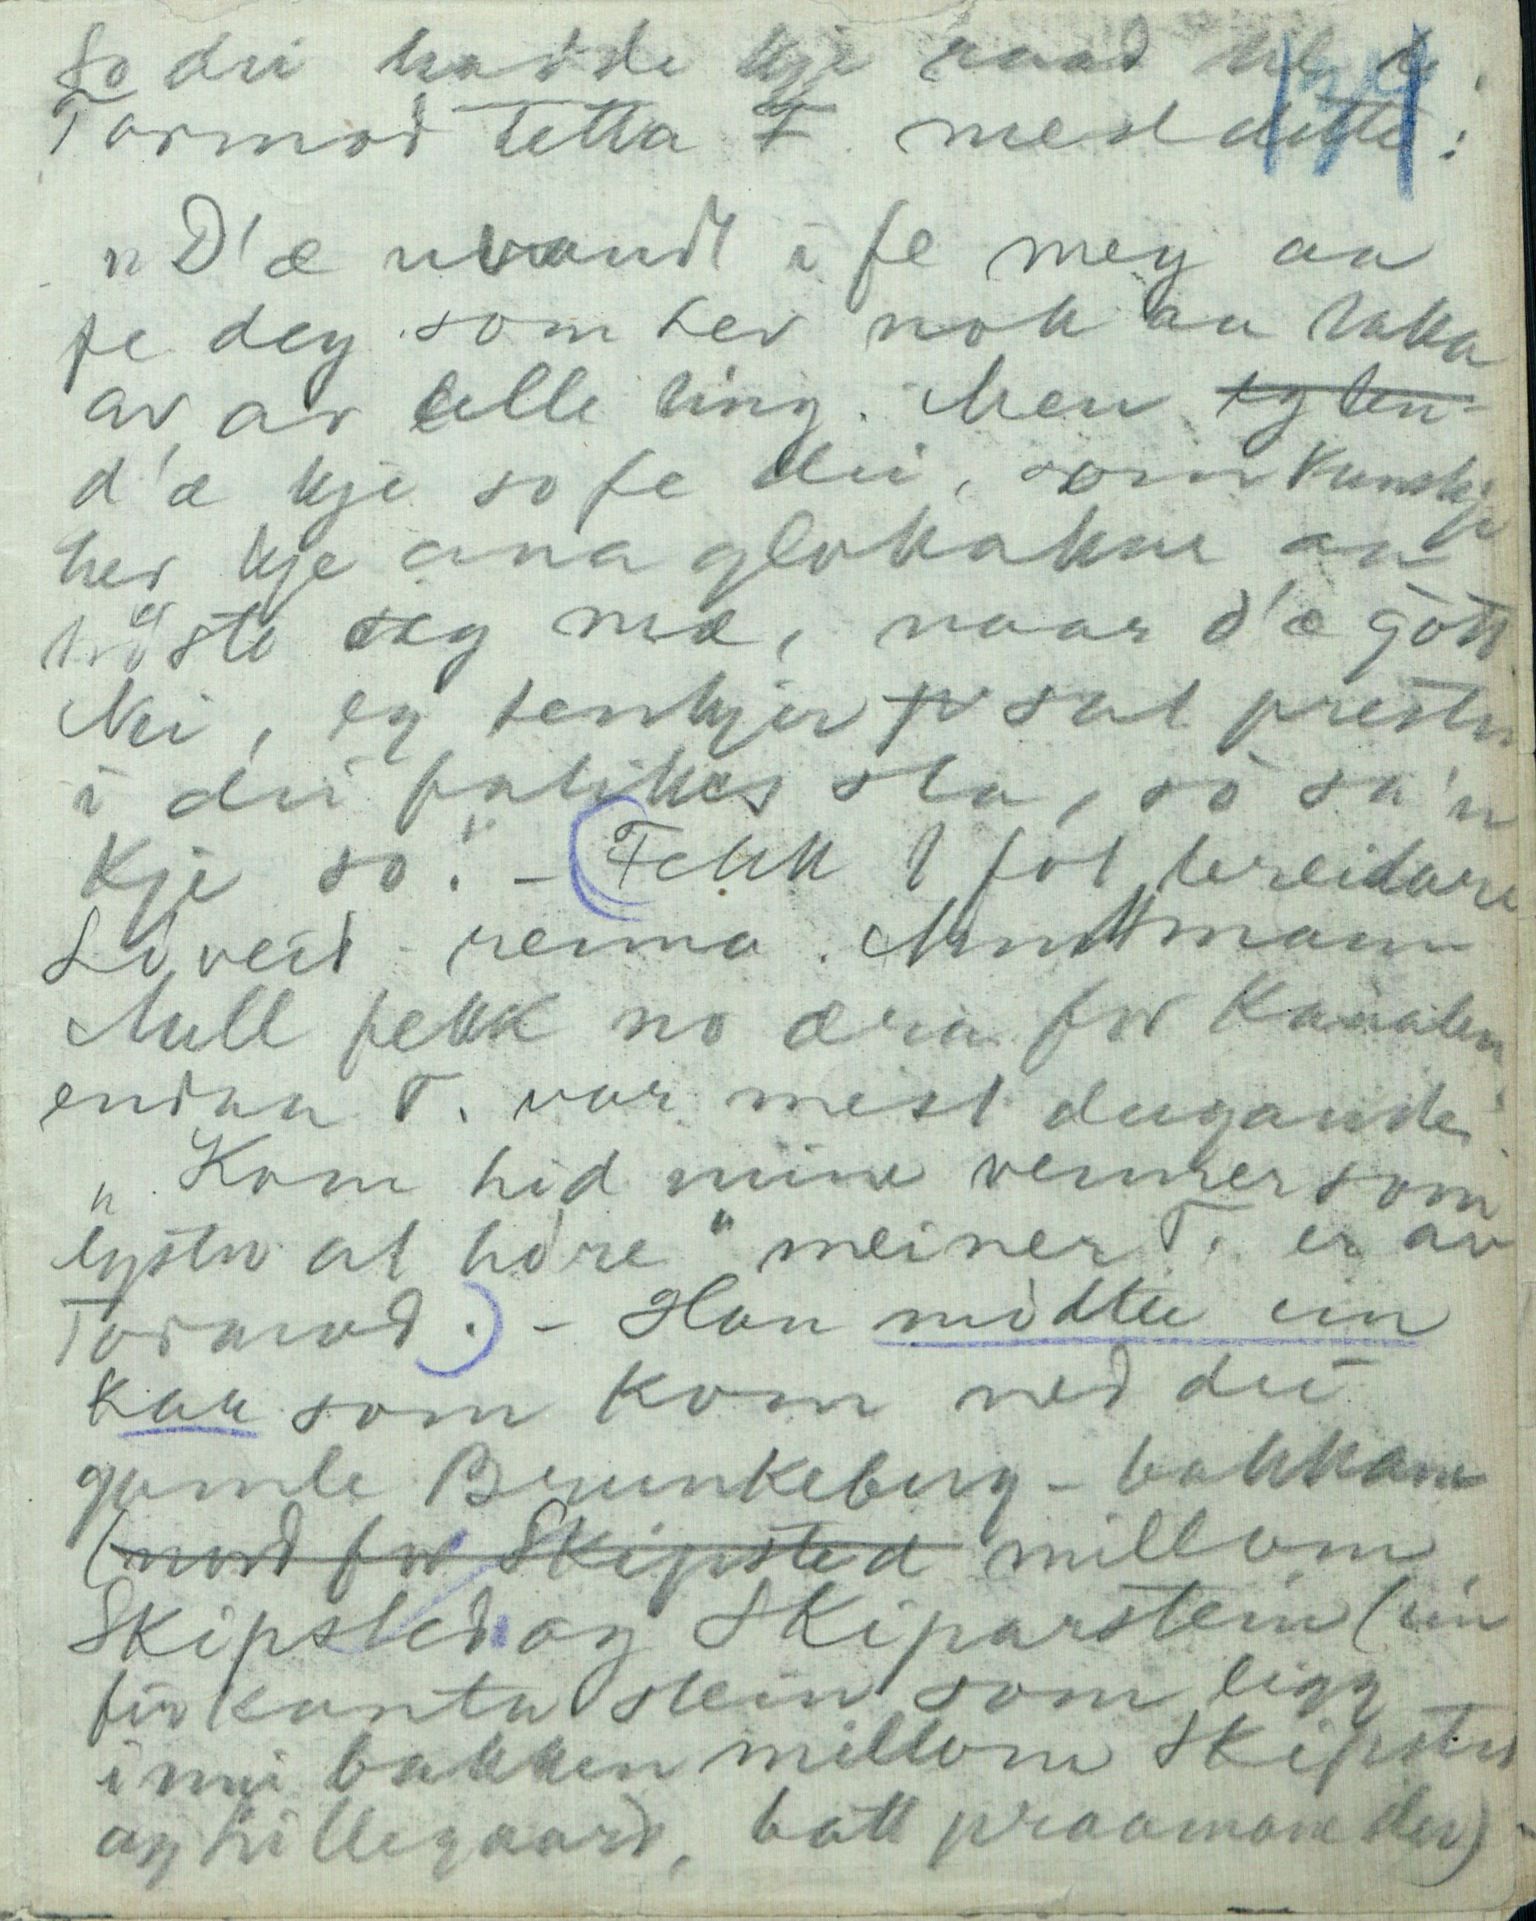 So dei hadde kje raad til d.
Tormod tetta T. med dette:
"D'æ uvandt i fe meg aa
fe deg som hev nok aa taka
av, av alle ting. Men eg ten-
d'æ kje so fe dei, som kunskje
hev kje ana glokakur aa
trøste seg mæ, naar d'æ gott
Nei, eg tenkjer fo sat presten
i dei fatikes sta, so sa'n
kje so." - (Fekk 1 fot breidare
Liveid - renna. Amtmann
Aall fekk no æra for Kanalen
endaa T. var mest dugande.
"Kom hid mine venner som
lyster at høre" meiner T. er av
Tormod.) - Han mødte ein
kak som kom ned dei
gamle Brunkeberg-bakkane
(nord for Skipsted millom
Skipsted og Skiparstein (ein
firkanta stein som ligg
i mei bakken millom Skipsted
og Hillegaard, batt praamane der) -